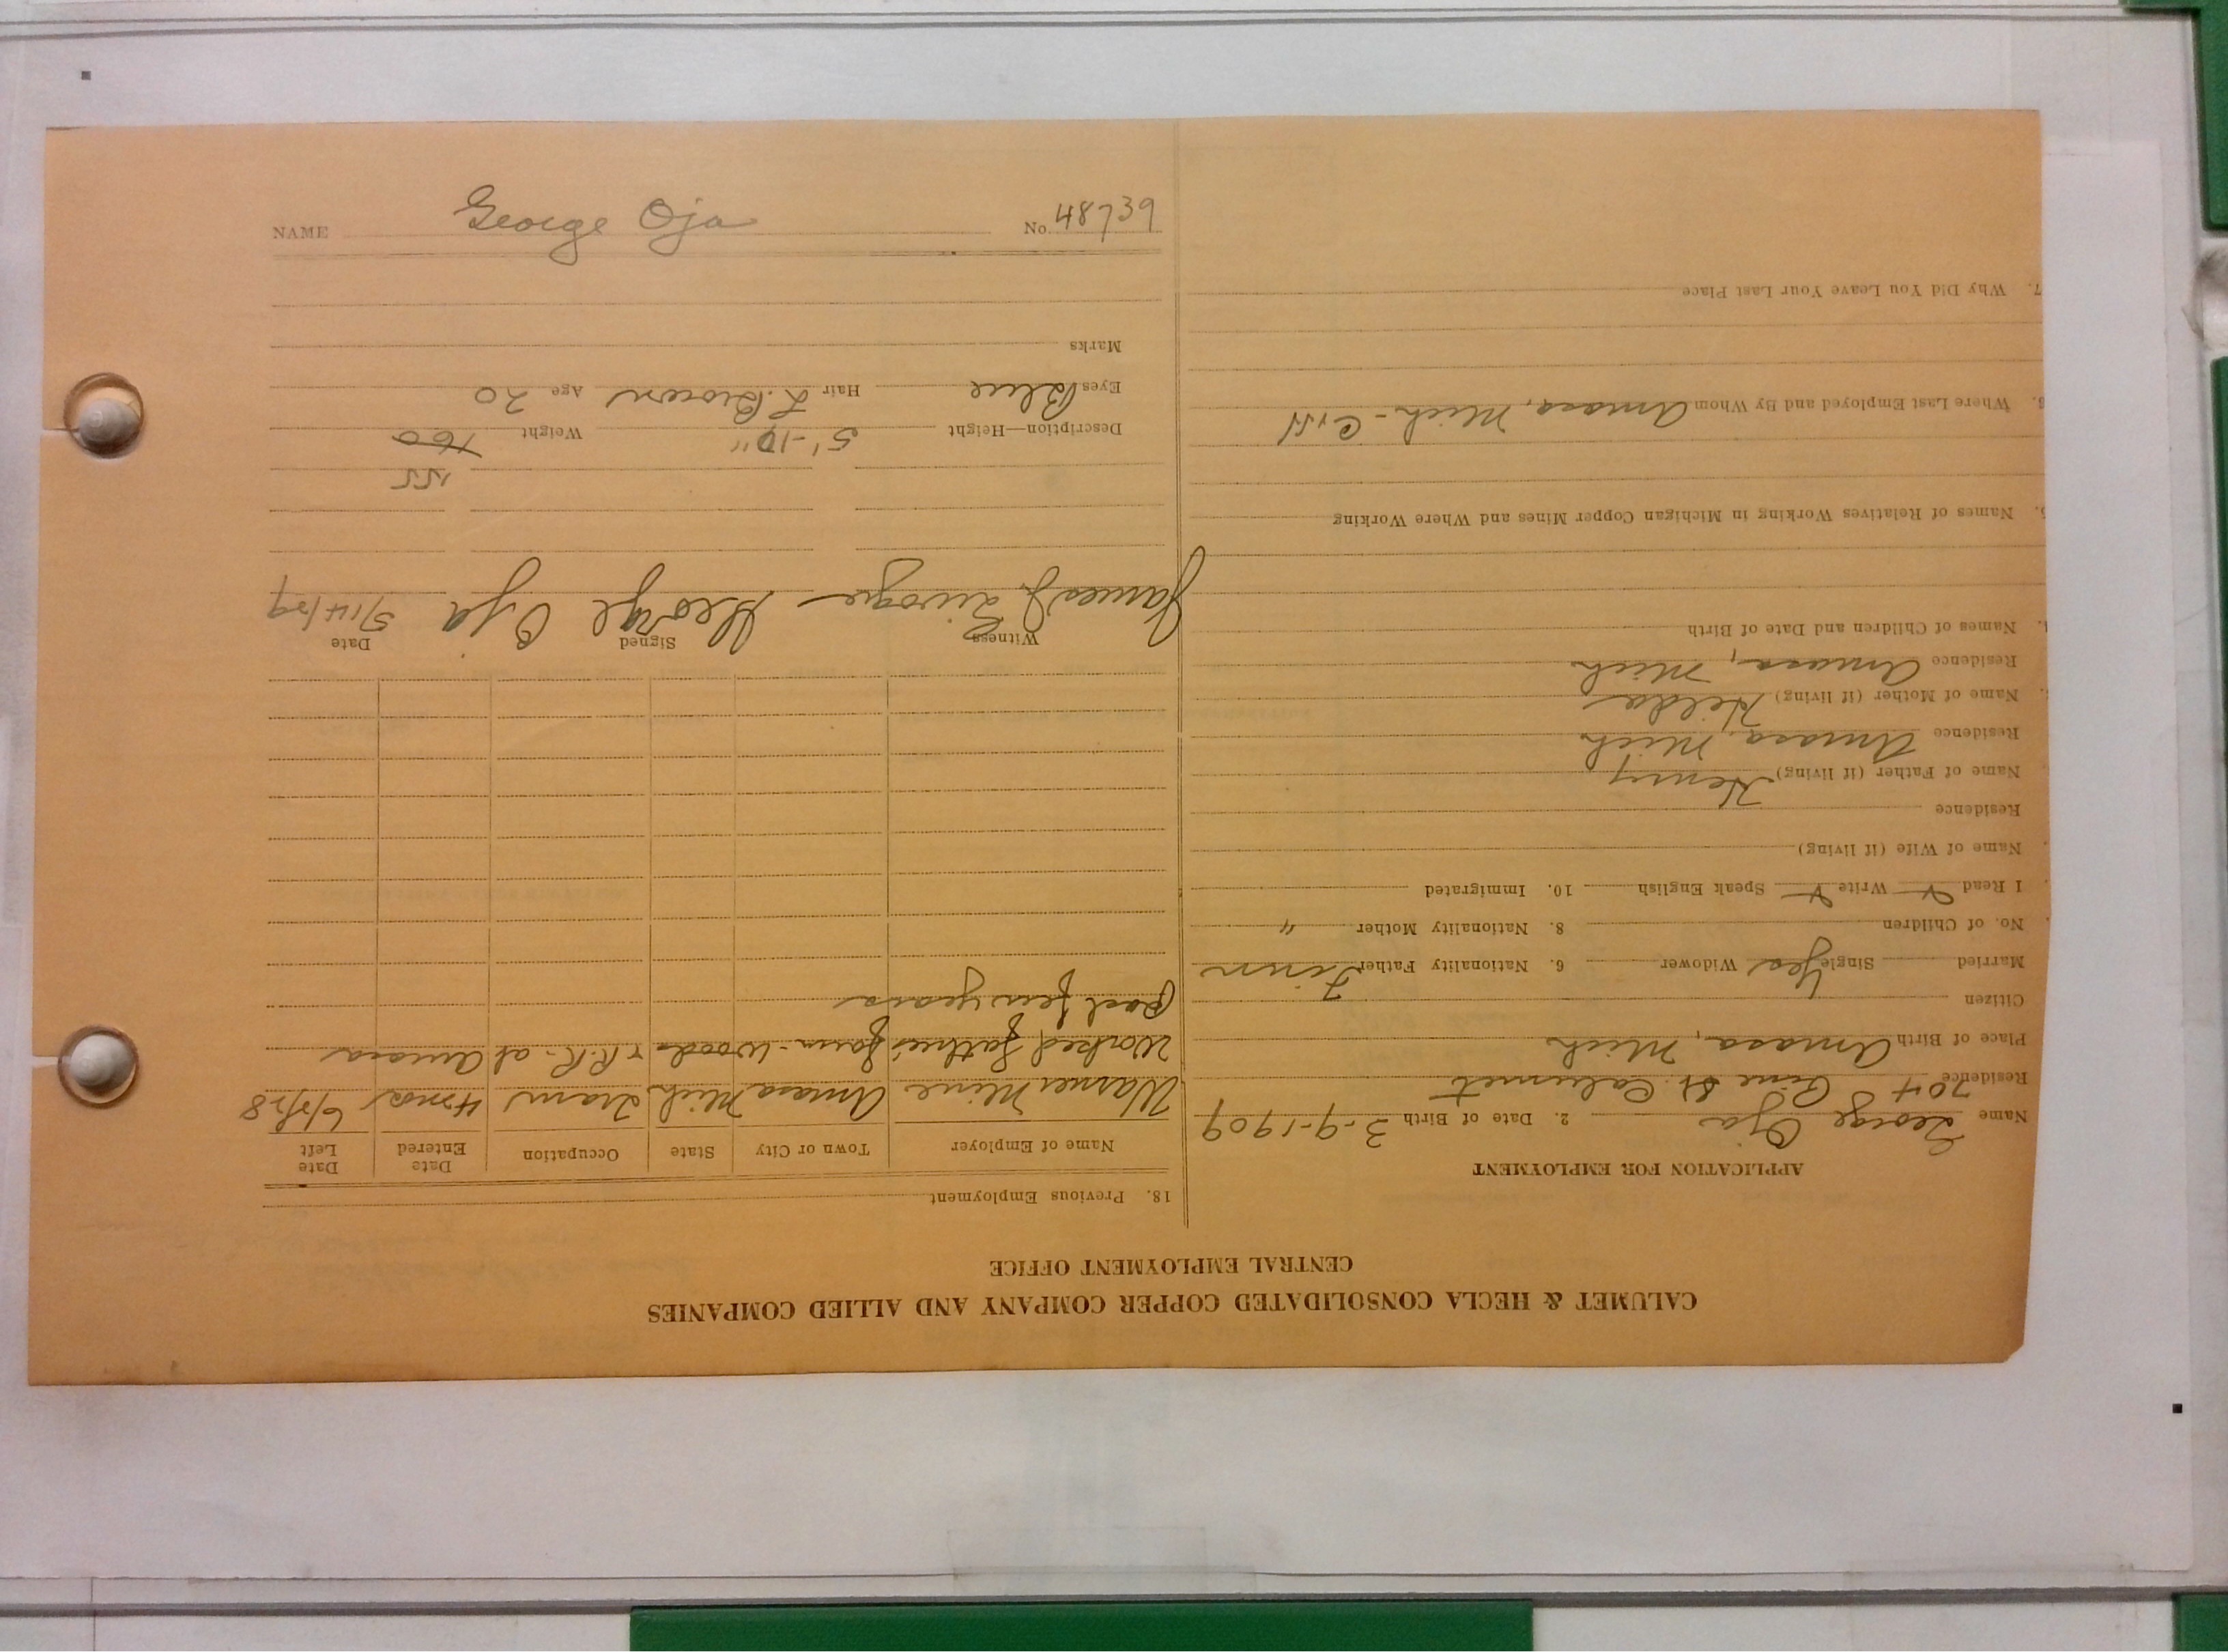 NAME George Oja No. 48739
CALUMET & HECLA CONSOLIDATED COPPER COMPANY AND ALLIED COMPANIES
CENTRAL EMPLOYMENT OFFICE
APPLICATION FOR EMPLOYMENT
Name George Oja 2. Date of Birth 3-9-1909
Residence 704 Pine St. Calumet
Place of Birth Amasa, Mich
Citizen
Married Single Yes Widower 6. Nationality Father Finn
No. of Children 8. Nationality Mother "
I Read Write Speak English 10. Immigrated
Name of Wife (if living)
Residence
Name of Father (if living) Henry
Residence Amasa, Mich
Name of Mother (if living) Hilda
Residence Amasa, Mich
Names of Children and Date of Birth
Names of Relatives Working in Michigan Copper Mines and Where Working
Where Last Employed and By Whom Amasa, Mich -
7. Why Did You Leave Your Last Place
18. Previous Employment
Name of Employer Town or City State Occupation Date Entered Date Left
Warner Mine Amasa Mich Tram 4 mos 6/5/28
Worked father's farm - woods & R.R. at Amasa
past few years
Witness Signed Date
James J. George Oja 5/14/29
155
Description—Height 5'-10" Weight 160
Eyes Blue Hair L. Brown Age 20
Marks